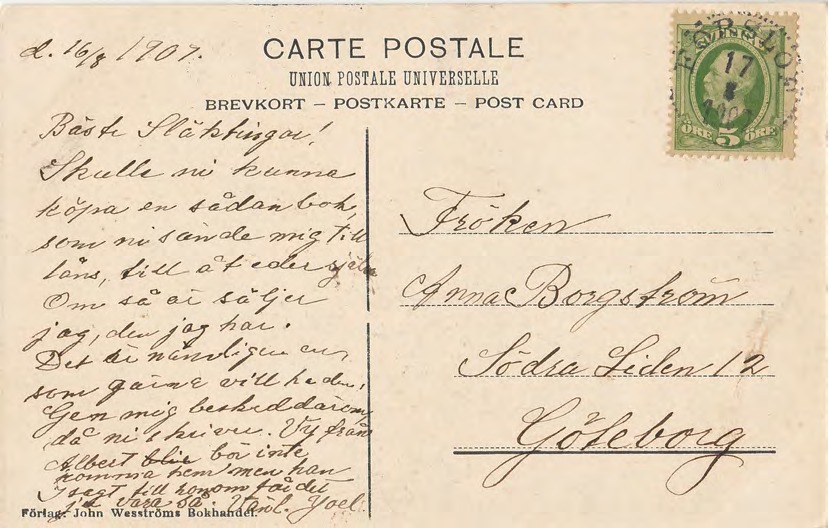 d. 16/8 1907.
CARTE POSTALE
UNION POSTALE UNIVERSELLE
BREVKORT – POSTKARTE – POST CARD
SVERIGE
17
8
5
ÖRE ÖRE
Bäste Släktingar!
Skulle ni kunna
köpa en sådan bok,
som ni sände mig till
låns, till åt eder själv
Om så är säljer
jag, den jag har.
Det är nämligen en,
som gärna vill ha den,
Gen mig besked därom
då ni skriver. Vy från
Albert blir bör inte
komma hem men han
sagt till honom får det
vara så. Vänl. Joel.
Fröken
Anna Borgström
Södra Liden 12
Göteborg
Förlag: John Wesströms Bokhandel.